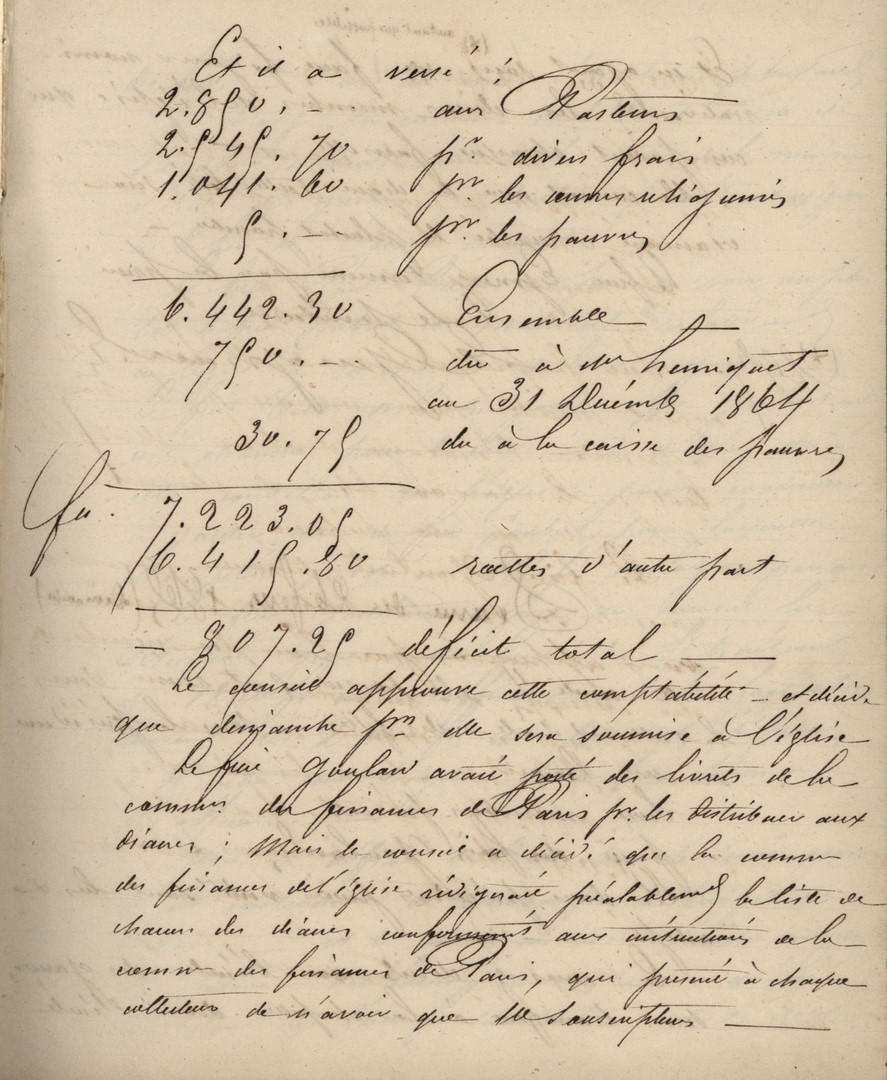 Et il a versé :
2.850. — aux Pasteurs
2.545. 70 pr. divers frais
1.041. 60 pr les œuvres religieuses
5. — pr. les pauvres
6.442. 30 Ensemble
750. — du à Mr
au 31 Décembre 1864
30. 75 du à la caisse des pauvres
7.223.05
6.415.80 recettes d'autre part
— 807.25 déficit total —
Le conseil approuve cette comptabilité — et décide
que dimanche pn elle sera soumise à l'église
Le frère avait porté des livrets de la
commn. des finances de Paris pr. les distribuer aux
diacres ; Mais le conseil a décidé que la commn
des finances de l'église rédigerait préalablemt la liste de
chacun des diacres conformément aux instructions de la
commn des finances de Paris, qui prescrit à chaque
collecteur de n'avoir que 10 souscripteurs —